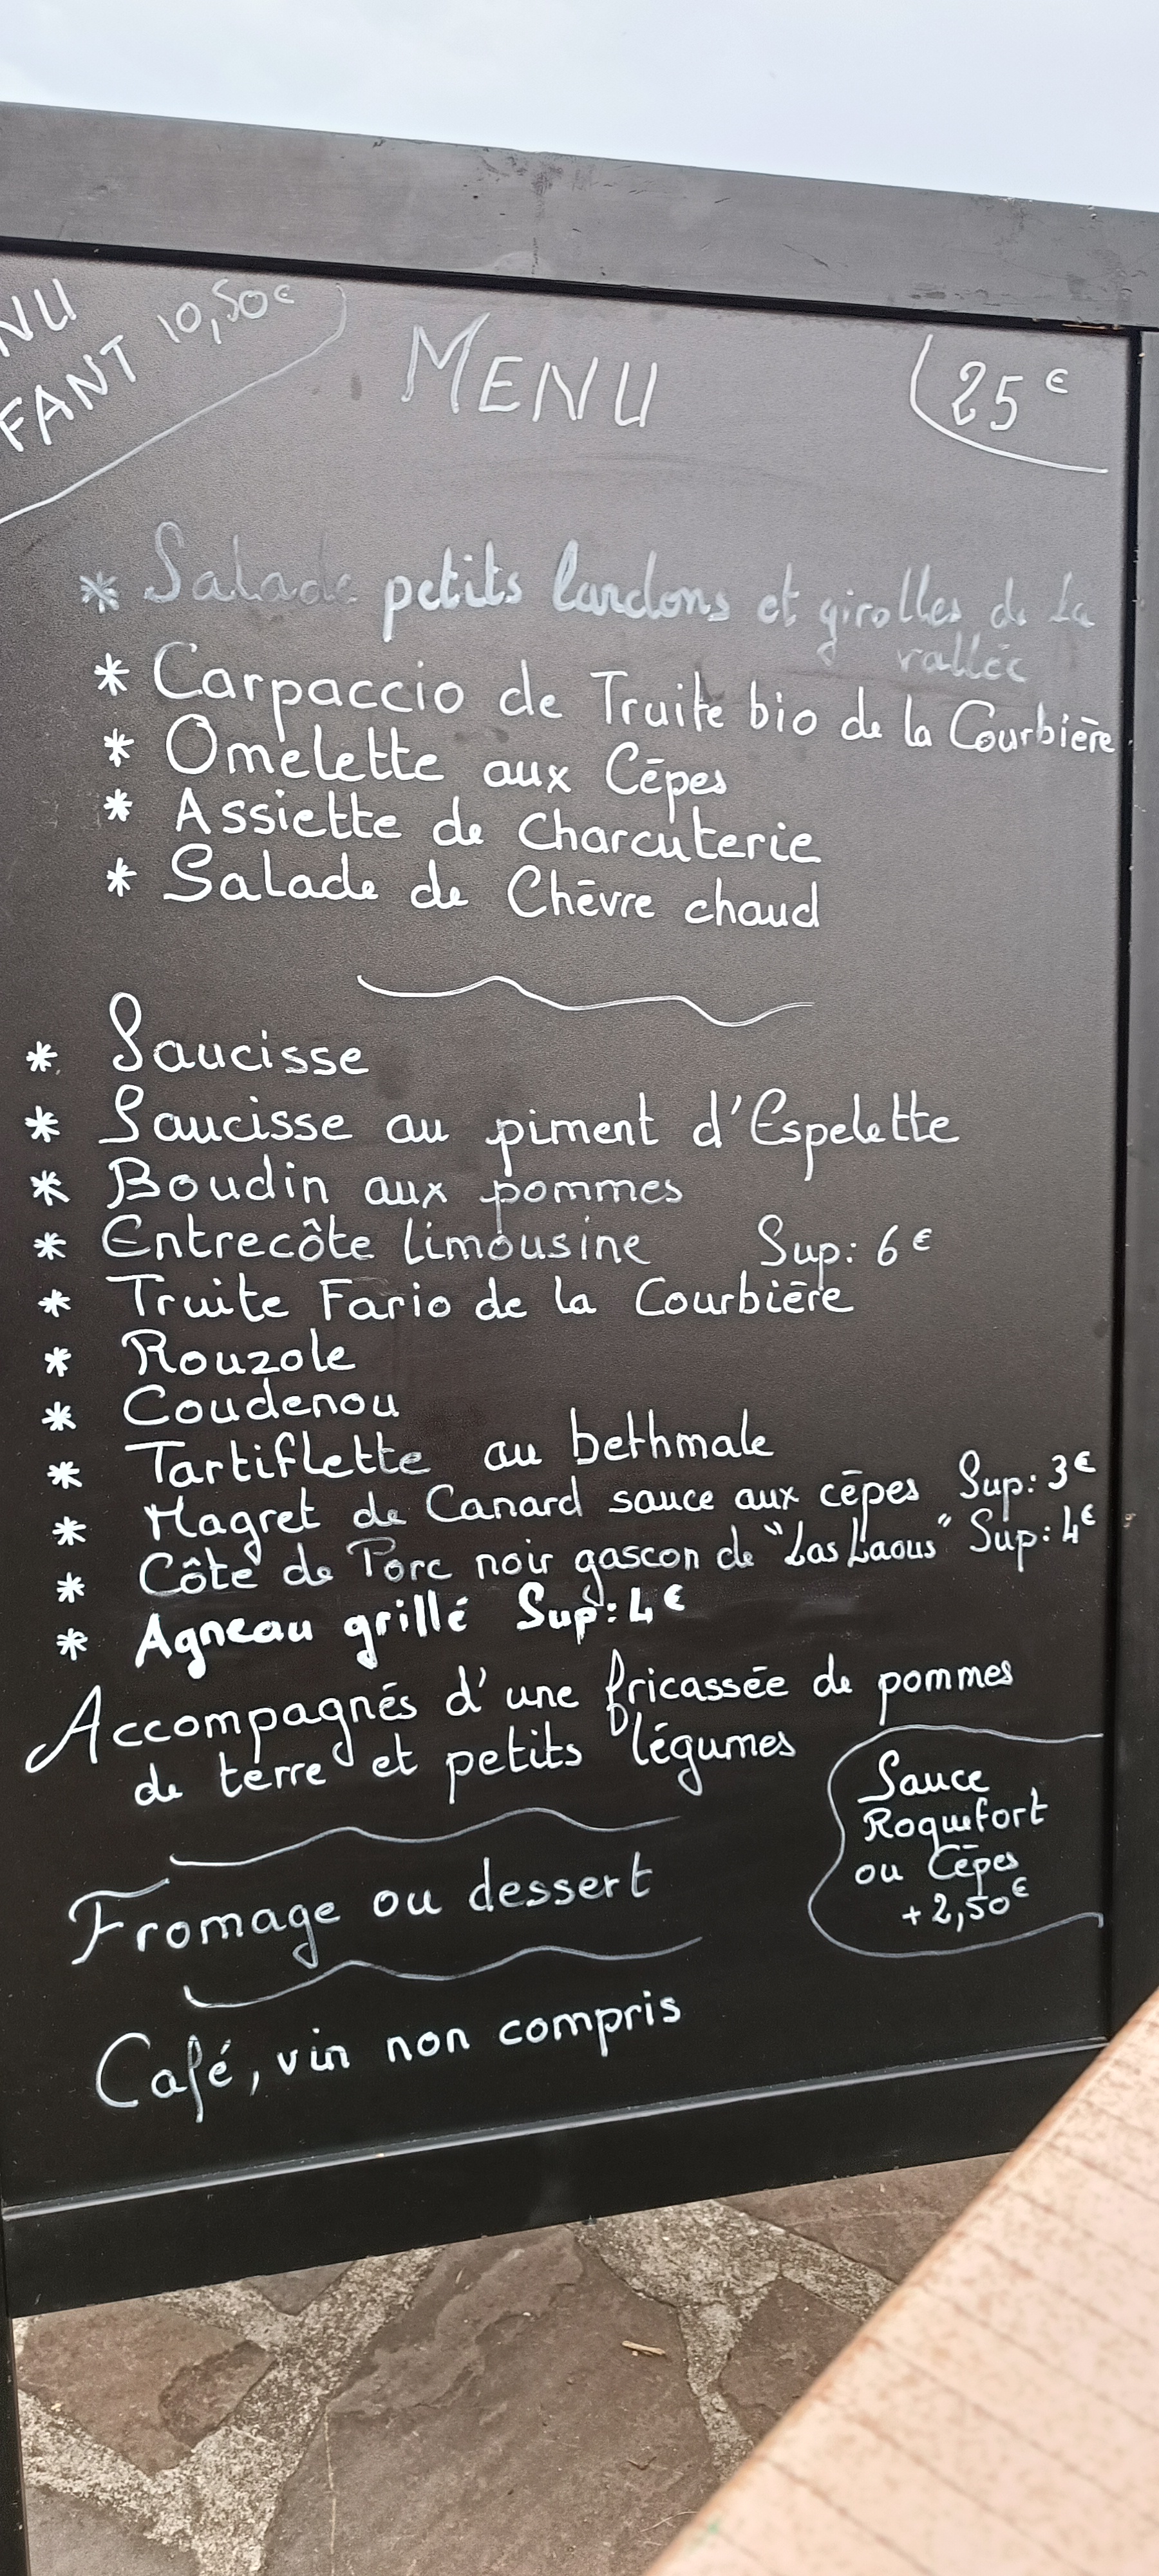 NU
FANT 10,50€
MENU
25€
* Salade petits lardons et girolles de la
vallée
* Carpaccio de Truite bio de la Courbière
* Omelette aux Cêpes
* Assiette de Charcuterie
* Salade de Chèvre chaud
* Saucisse
* Saucisse au piment d'Espelette
* Boudin aux pommes
* Entrecôte limousine Sup: 6€
* Truite Fario de la Courbière
* Rouzole
* Coudenou
* Tartiflette au bethmale
* Magret de Canard sauce aux cêpes Sup: 3€
* Côte de Porc noir gascon de "Las Laous" Sup: 4€
* Agneau grillé Sup: 4€
Accompagnés d'une fricassée de pommes
de terre et petits légumes
Sauce
Roquefort
ou Cêpes
+ 2,50€
Fromage ou dessert
Café, vin non compris